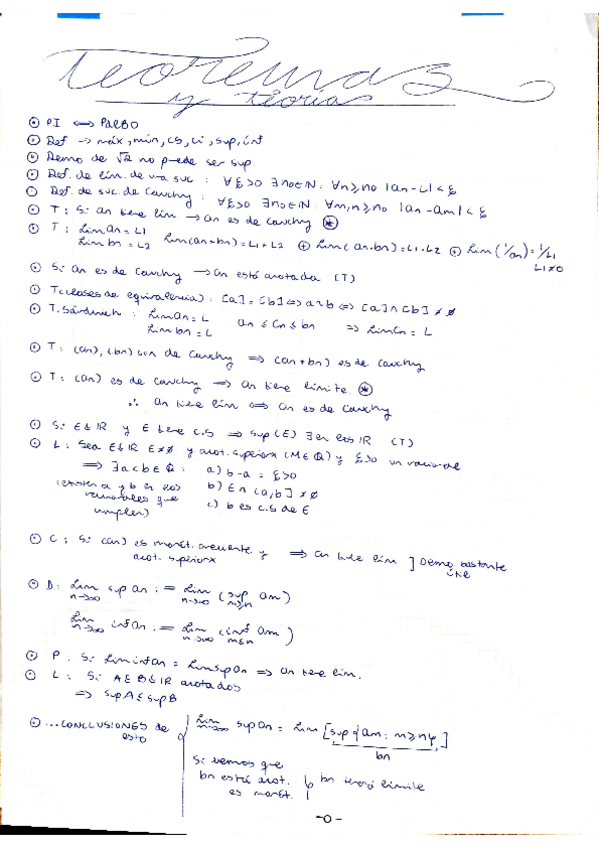 Teoremas
y teorias
⊙ PI ⟺ PALBO
⊙ Def → máx, min, cs, ci, sup, inf
⊙ Demo de √2 no puede ser sup
⊙ Def. de lím. de una suc : ∀ξ>0 ∃no∈N: ∀n≥no |an-L|<ξ
⊙ Def. de suc. de Cauchy : ∀ξ>0 ∃no∈N: ∀m,n≥no |an-am|<ξ
⊙ T: Si an tiene lím → an es de Cauchy ⊛
⊙ T: Lim an = L1
Lim bn = L2 Lim(an+bn)=L1+L2 ⊕ Lim(an·bn)=L1·L2 ⊕ Lim(1/an)=1/L1
L1≠0
⊙ Si an es de Cauchy → an está acotada (T)
⊙ T(clases de equivalencia): [a]=[b] ⟺ a~b ⟺ [a]∩[b]≠∅
⊙ T. Sándwich : Lim an = L
Lim bn = L an ≤ cn ≤ bn ⟹ Lim cn = L
⊙ T: (an), (bn) son de Cauchy ⟹ (an+bn) es de Cauchy
⊙ T: (an) es de Cauchy ⟹ an tiene límite ⊛
∴ an tiene lím ⟺ an es de Cauchy
⊙ Si E⊆IR y E tiene c.s ⟹ sup(E) ∃ en los IR (T)
⊙ L: Sea E⊆IR E≠∅ y acot. superiorx (M∈Q) y ξ>0 un racional
⟹ ∃a<b∈Q : a) b-a = ξ>0
(existen a y b en los b) E∩(a,b]≠∅
racionales que c) b es c.s de E
cumplen)
⊙ C: Si (an) es monót. creciente y ⟹ an tiene lím ] Demo bastante
acot. superiorx útil
⊙ D: Lim sup an := Lim (sup am)
n→∞ n→∞ m≥n
Lim inf an := Lim (inf am)
n→∞ n→∞ m≥n
⊙ P. Si Lim inf an = Lim sup an ⟹ an tiene lím.
⊙ L: Si A⊆B⊆IR acotados
⟹ sup A ≤ sup B
⊙ ...CONCLUSIONES de esto
Lim sup an = Lim [sup{am: m≥n}]
n→∞
bn
Si vemos que
bn está acot. bn tendrá límite
es monót.
-0-